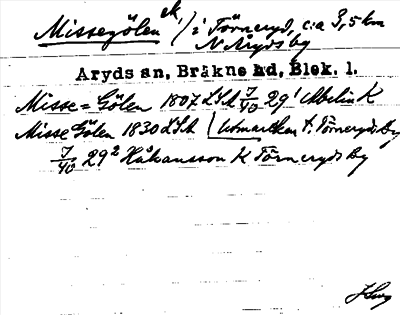 Missegölen ek / i Törneryd, c:a 3,5 km
N Aryds by
Aryds sn, Bräkne hd, Blek. l.
Misse=Gölen 1807 LSA 7/40 29¹ Abelin K
Misse Gölen 1830 LSA (utmarken t. Törneryds by
7/40 29² Håkansson K Törneryds by